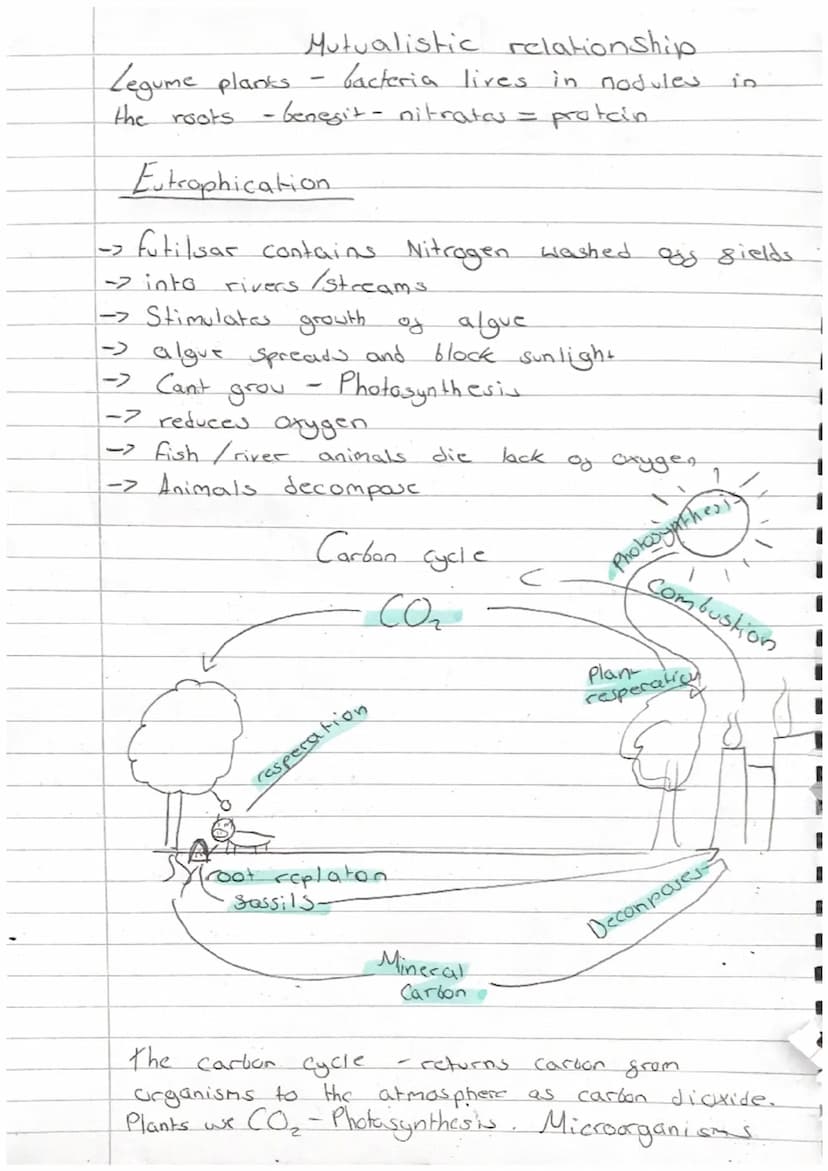 Mutualistic relationship
Legume plants - bacteria lives in nodules in
the roots - benefit - nitrates = protein
Eutrophication
-> futilsar contains Nitrogen washed off fields
-> into rivers/streams
-> Stimulates growth of algue
-> algue spreads and block sunlight
-> Cant grow - Photosynthesis
-> reduces oxygen
-> fish/river animals die lack of oxygen
-> Animals decompose
Carbon cycle
Photosynthesis
Combustion
CO₂
Plant
resperation
resperation
root replaton
fossils
Decomposes
Mineral
Carbon
The carbon cycle - returns carbon from
organisms to the atmosphere as carbon dioxide.
Plants use CO₂ - Photosynthesis. Microorganisms